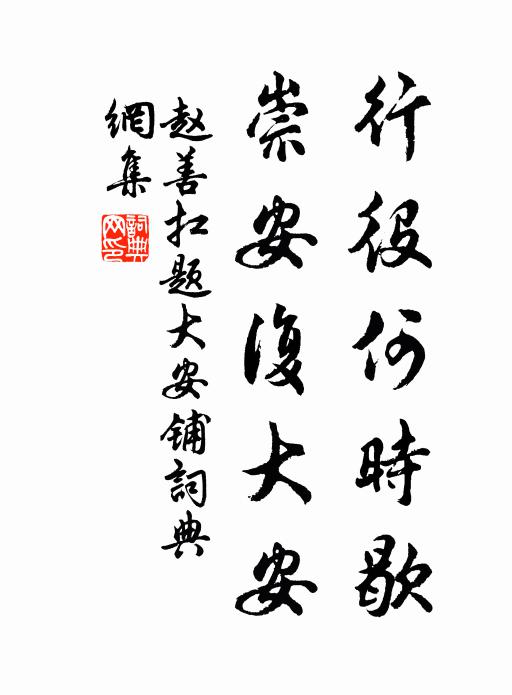 行役何時歇
崇安復大安
赵善扛题大安铺詞典
網集
詞典网印